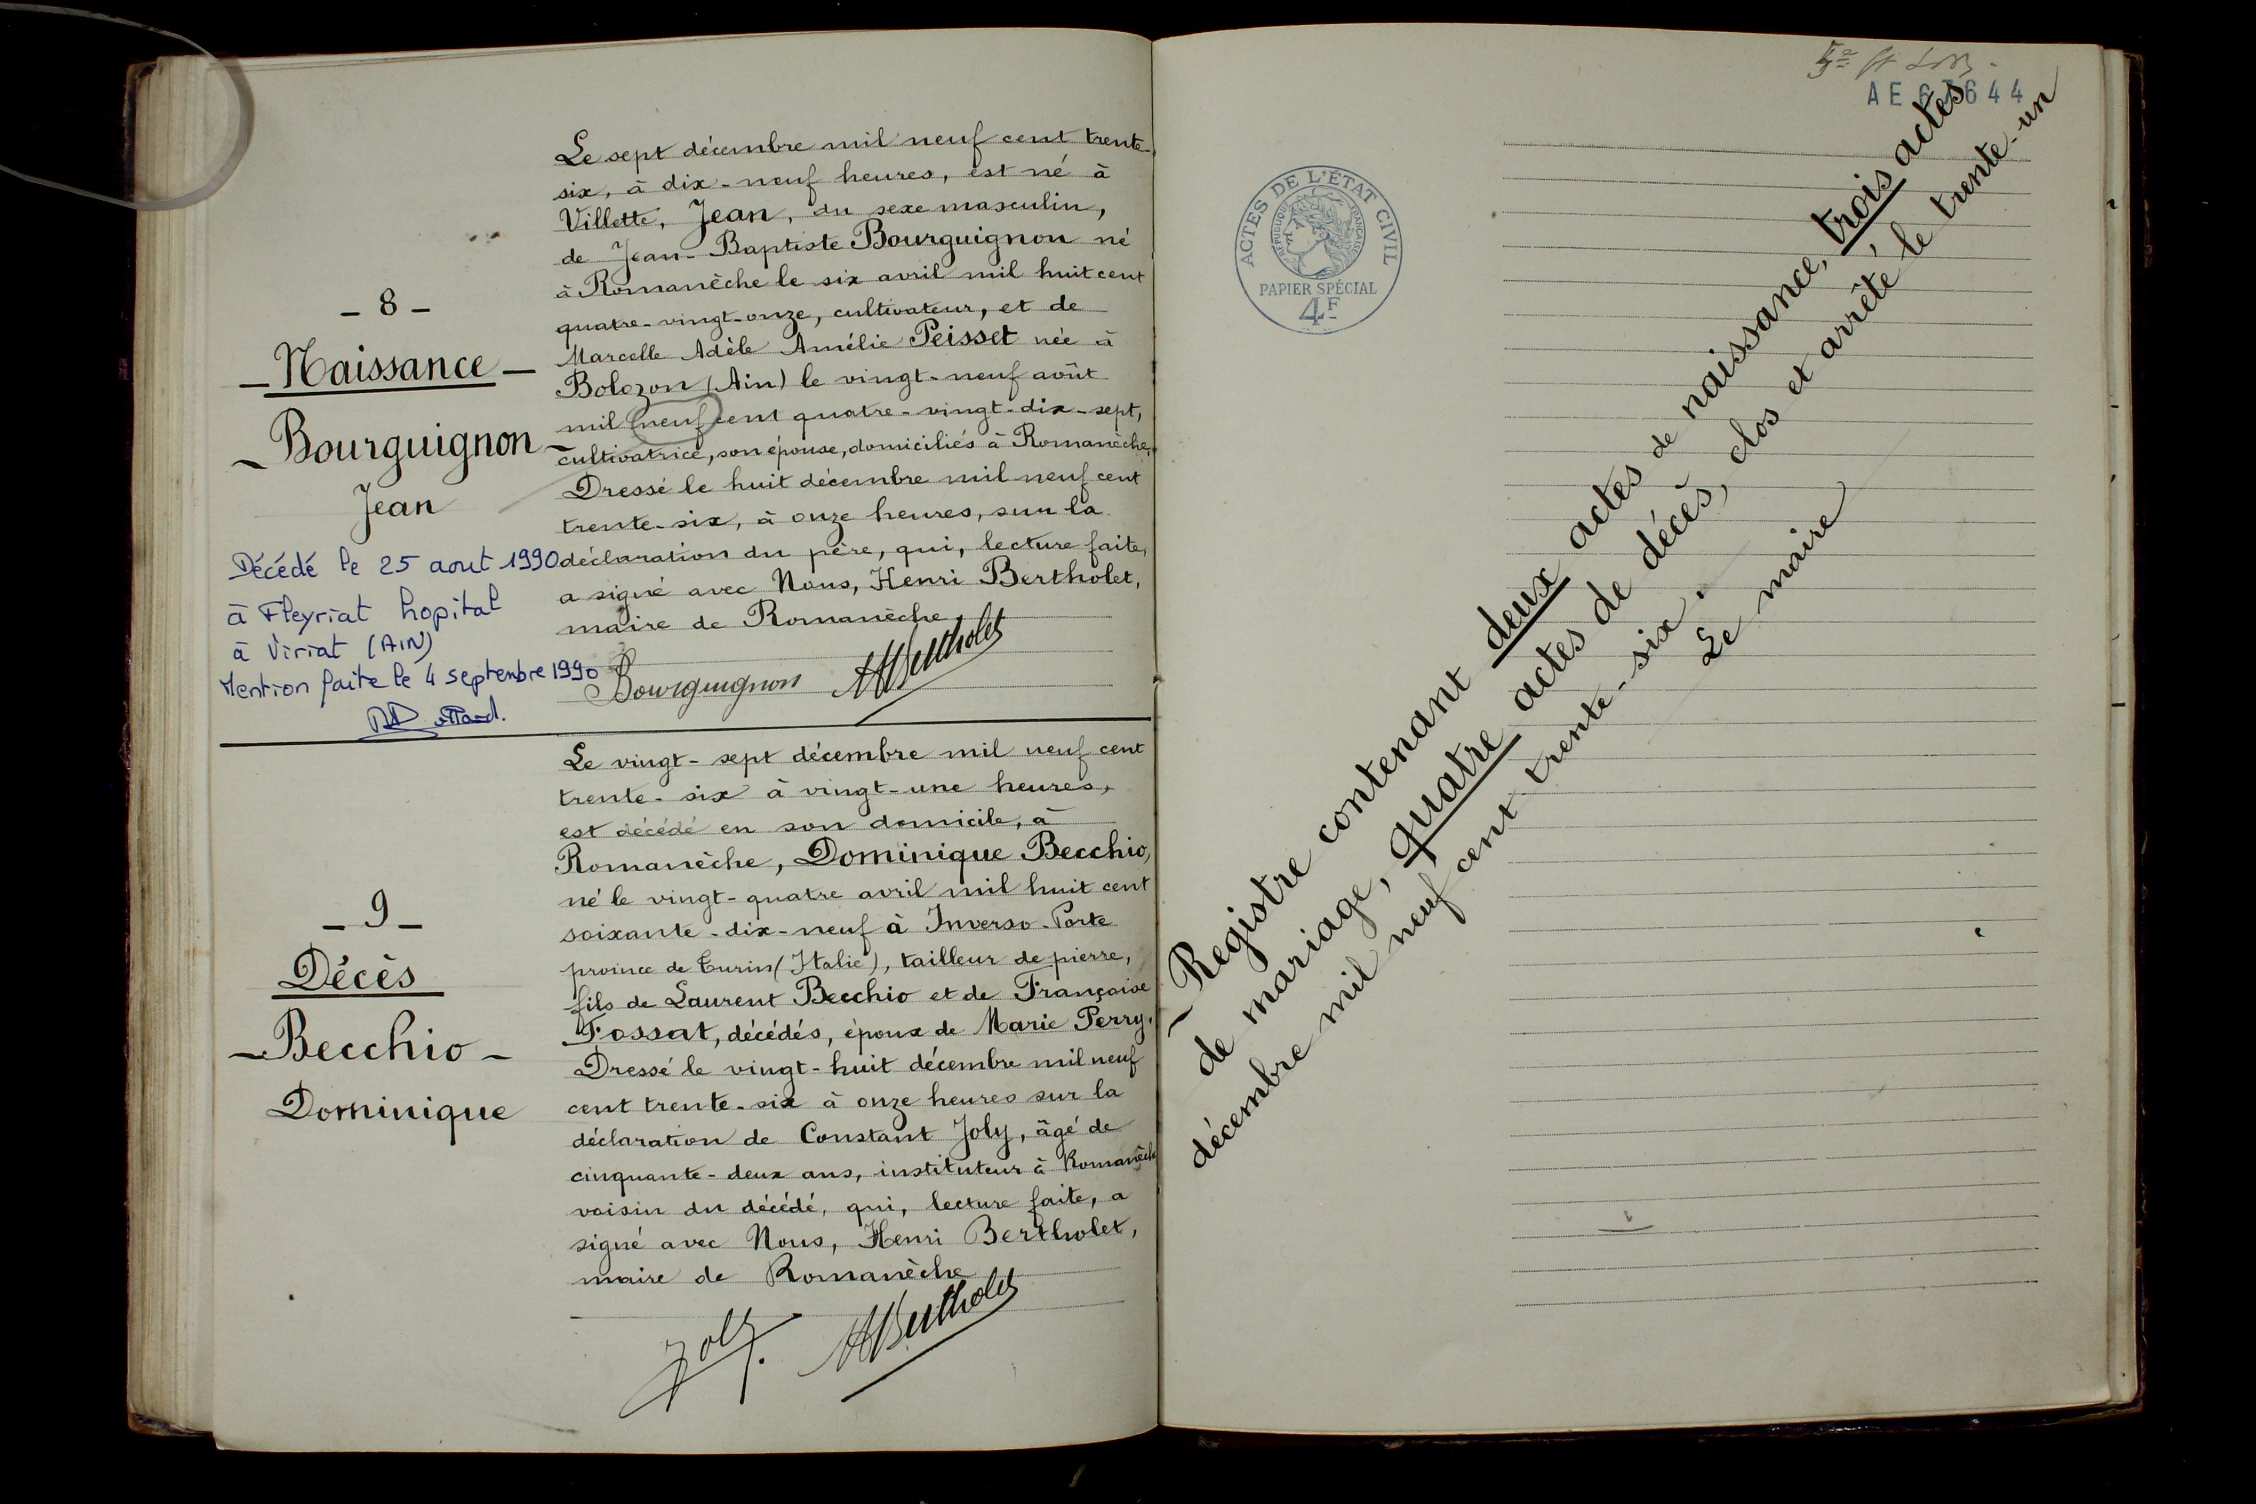 - 8 -
- Naissance -
- Bourguignon -
Jean
Décédé le 25 aout 1990
à Fleyriat hopital
à Viriat (AIN)
Mention faite le 4 septembre 1990
Le sept décembre mil neuf cent trente-
six, à dix-neuf heures, est né à
Villette, Jean, du sexe masculin,
de Jean-Baptiste Bourguignon né
à Romanèche le six avril mil huit cent
quatre-vingt-onze, cultivateur, et de
Marcelle Adèle Amélie Peisset née à
Bolozon (Ain) le vingt-neuf août
mil neuf cent quatre-vingt-dix-sept,
cultivatrice, son épouse, domiciliés à Romanèche.
Dressé le huit décembre mil neuf cent
trente-six, à onze heures, sur la
déclaration du père, qui, lecture faite,
a signé avec Nous, Henri Bertholet,
maire de Romanèche.
Bourguignon HBertholet
- 9 -
Décès
- Becchio -
Dominique
Le vingt-sept décembre mil neuf cent
trente-six à vingt-une heures,
est décédé en son domicile, à
Romanèche, Dominique Becchio,
né le vingt-quatre avril mil huit cent
soixante-dix-neuf à Inverso-Porte
province de Turin (Italie), tailleur de pierre,
fils de Laurent Becchio et de Françoise
Fossat, décédés, époux de Marie Perry.
Dressé le vingt-huit décembre mil neuf
cent trente-six à onze heures sur la
déclaration de Constant Joly, âgé de
cinquante-deux ans, instituteur à Romanèche
voisin du décédé, qui, lecture faite, a
signé avec Nous, Henri Bertholet,
maire de Romanèche
Joly. HBertholet
ACTES DE L'ÉTAT CIVIL
RÉPUBLIQUE FRANÇAISE
PAPIER SPÉCIAL
4F
- Registre contenant deux actes de naissance, trois actes
de mariage, quatre actes de décès, clos et arrêté le trente-un
décembre mil neuf cent trente-six.
Le maire